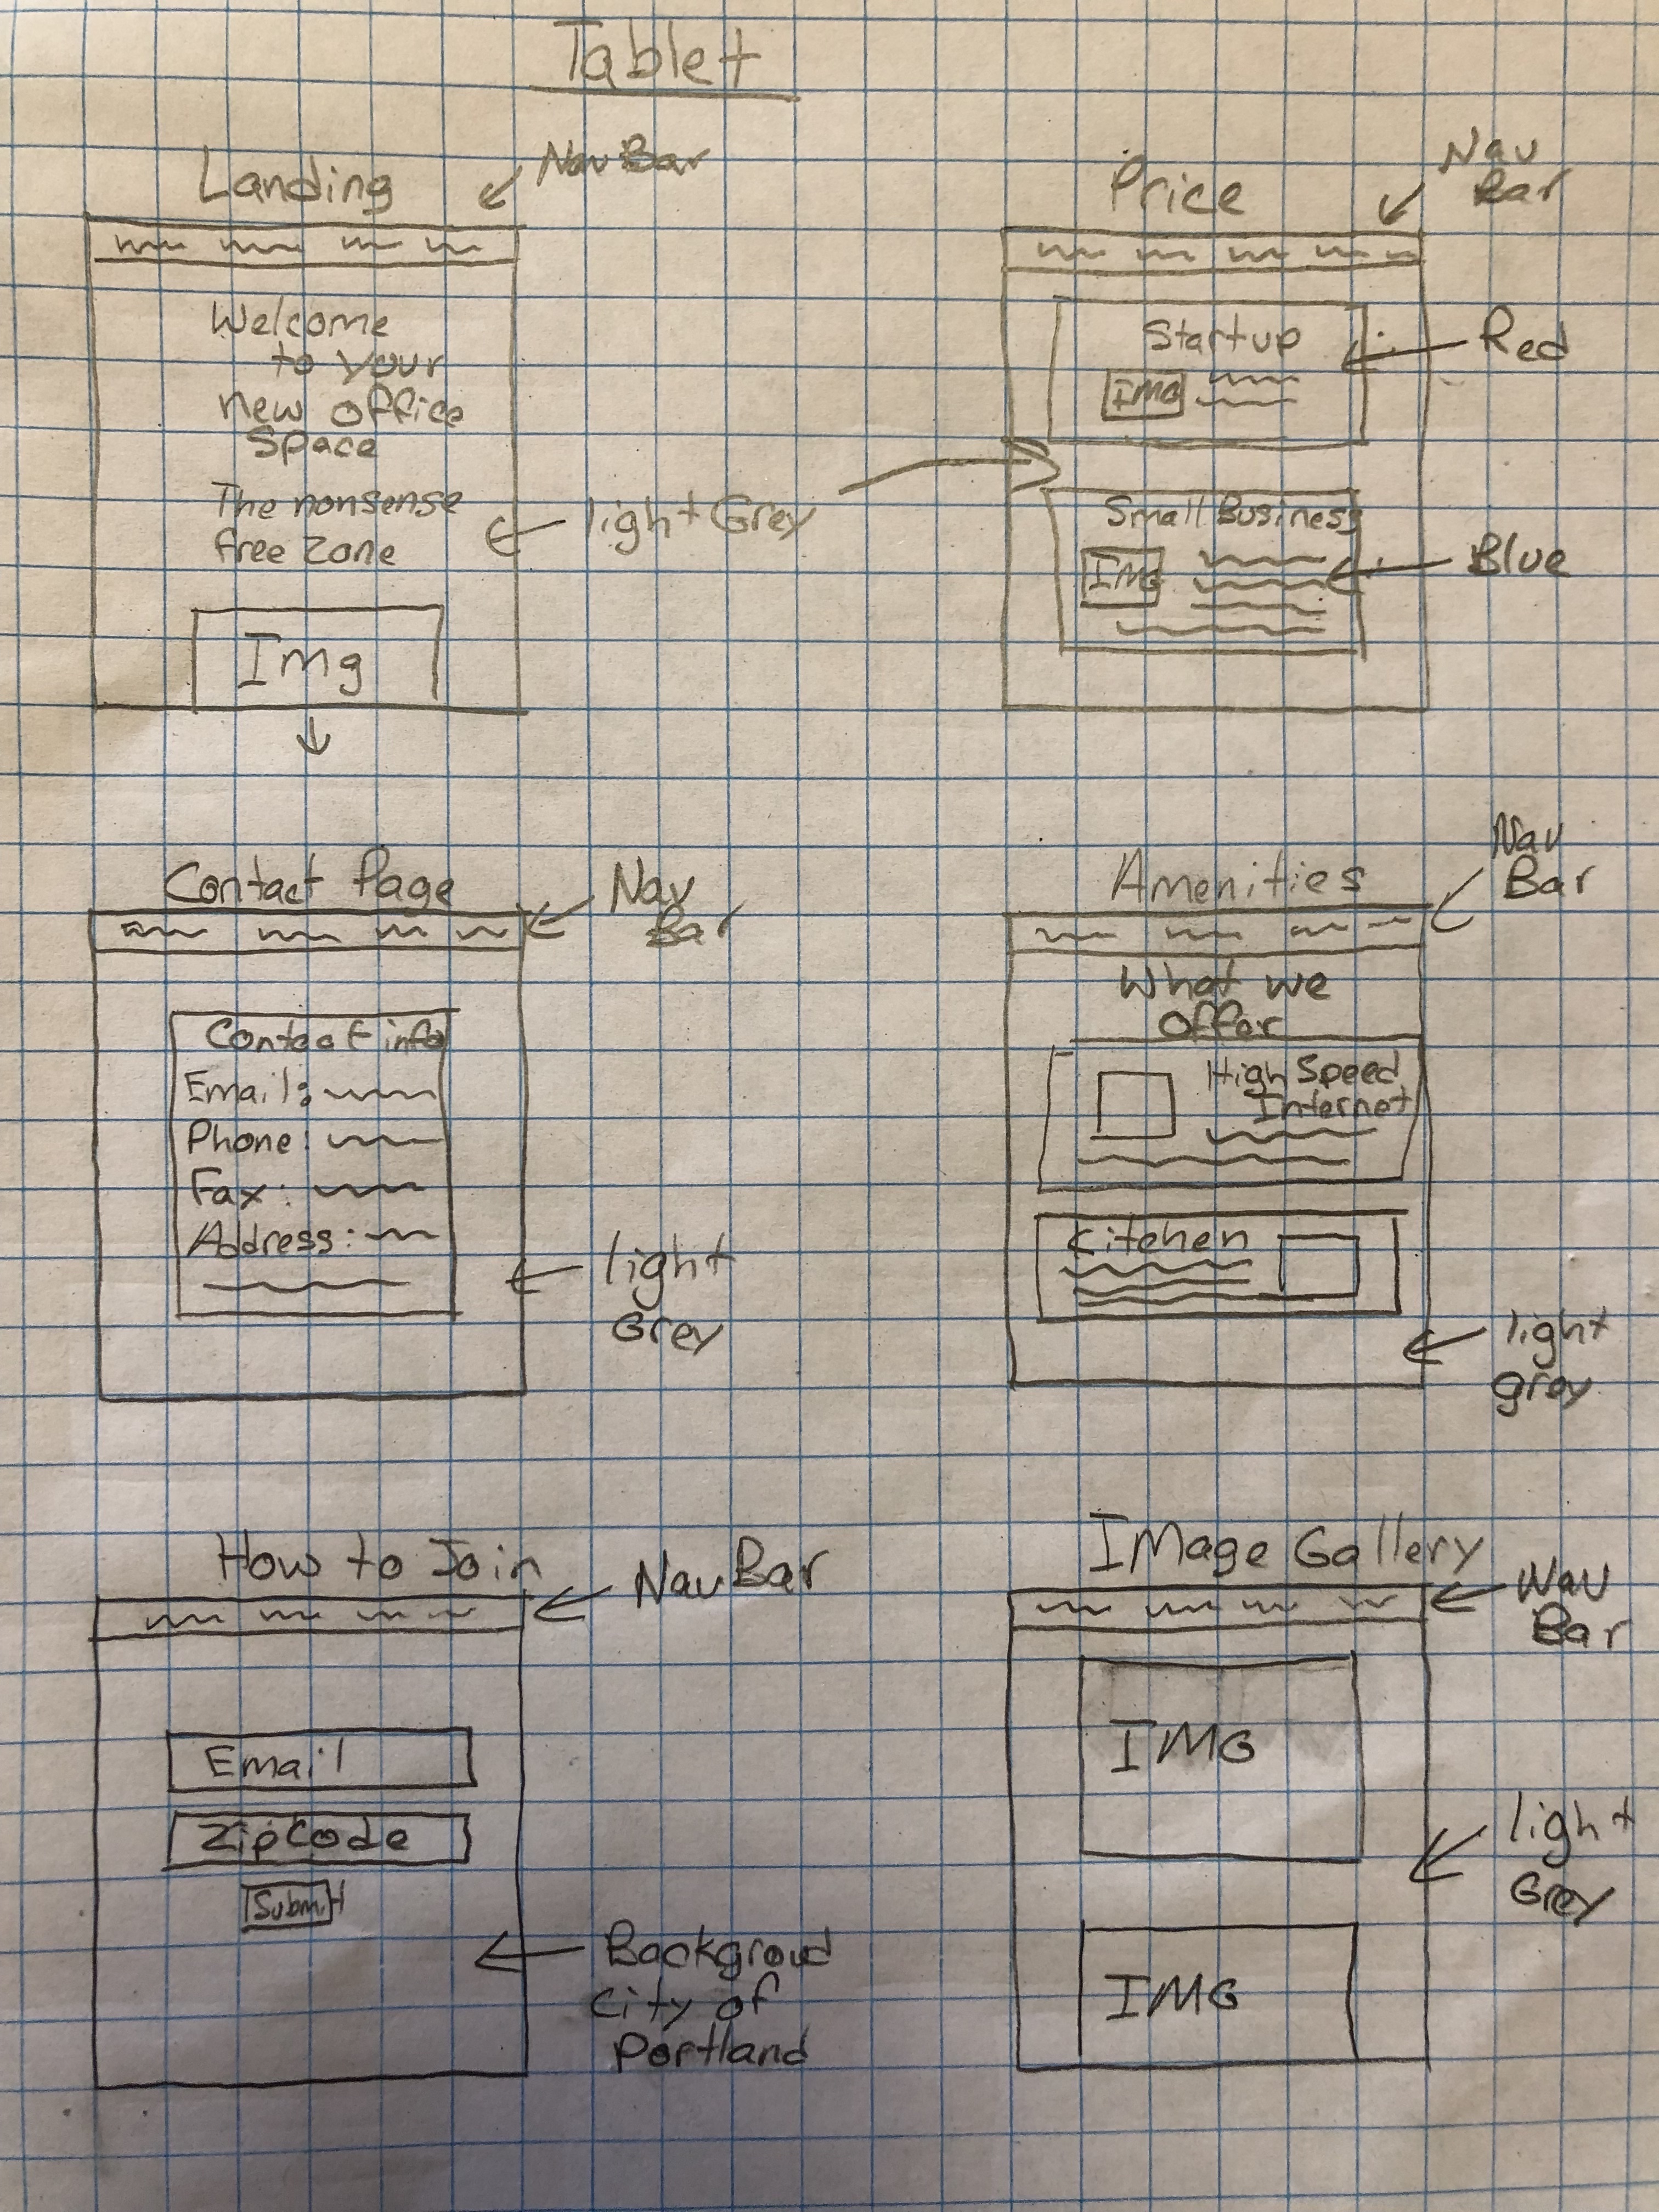 Tablet
Landing
Nav Bar
Welcome
to your
new office
Space
The nonsense
free zone
light Grey
Img
Price
Nav
Bar
Startup
IMG
Red
Small Business
IMG
Blue
Contact Page
Nav
Bar
Contact info
Email:
Phone:
Fax:
Address:
light
Grey
Amenities
Nav
Bar
What we
offer
High Speed
Internet
Kitchen
light
grey
How to Join
Nav Bar
Email
ZipCode
Submit
Backgroud
City of
Portland
IMage Gallery
Nav
Bar
IMG
light
Grey
IMG